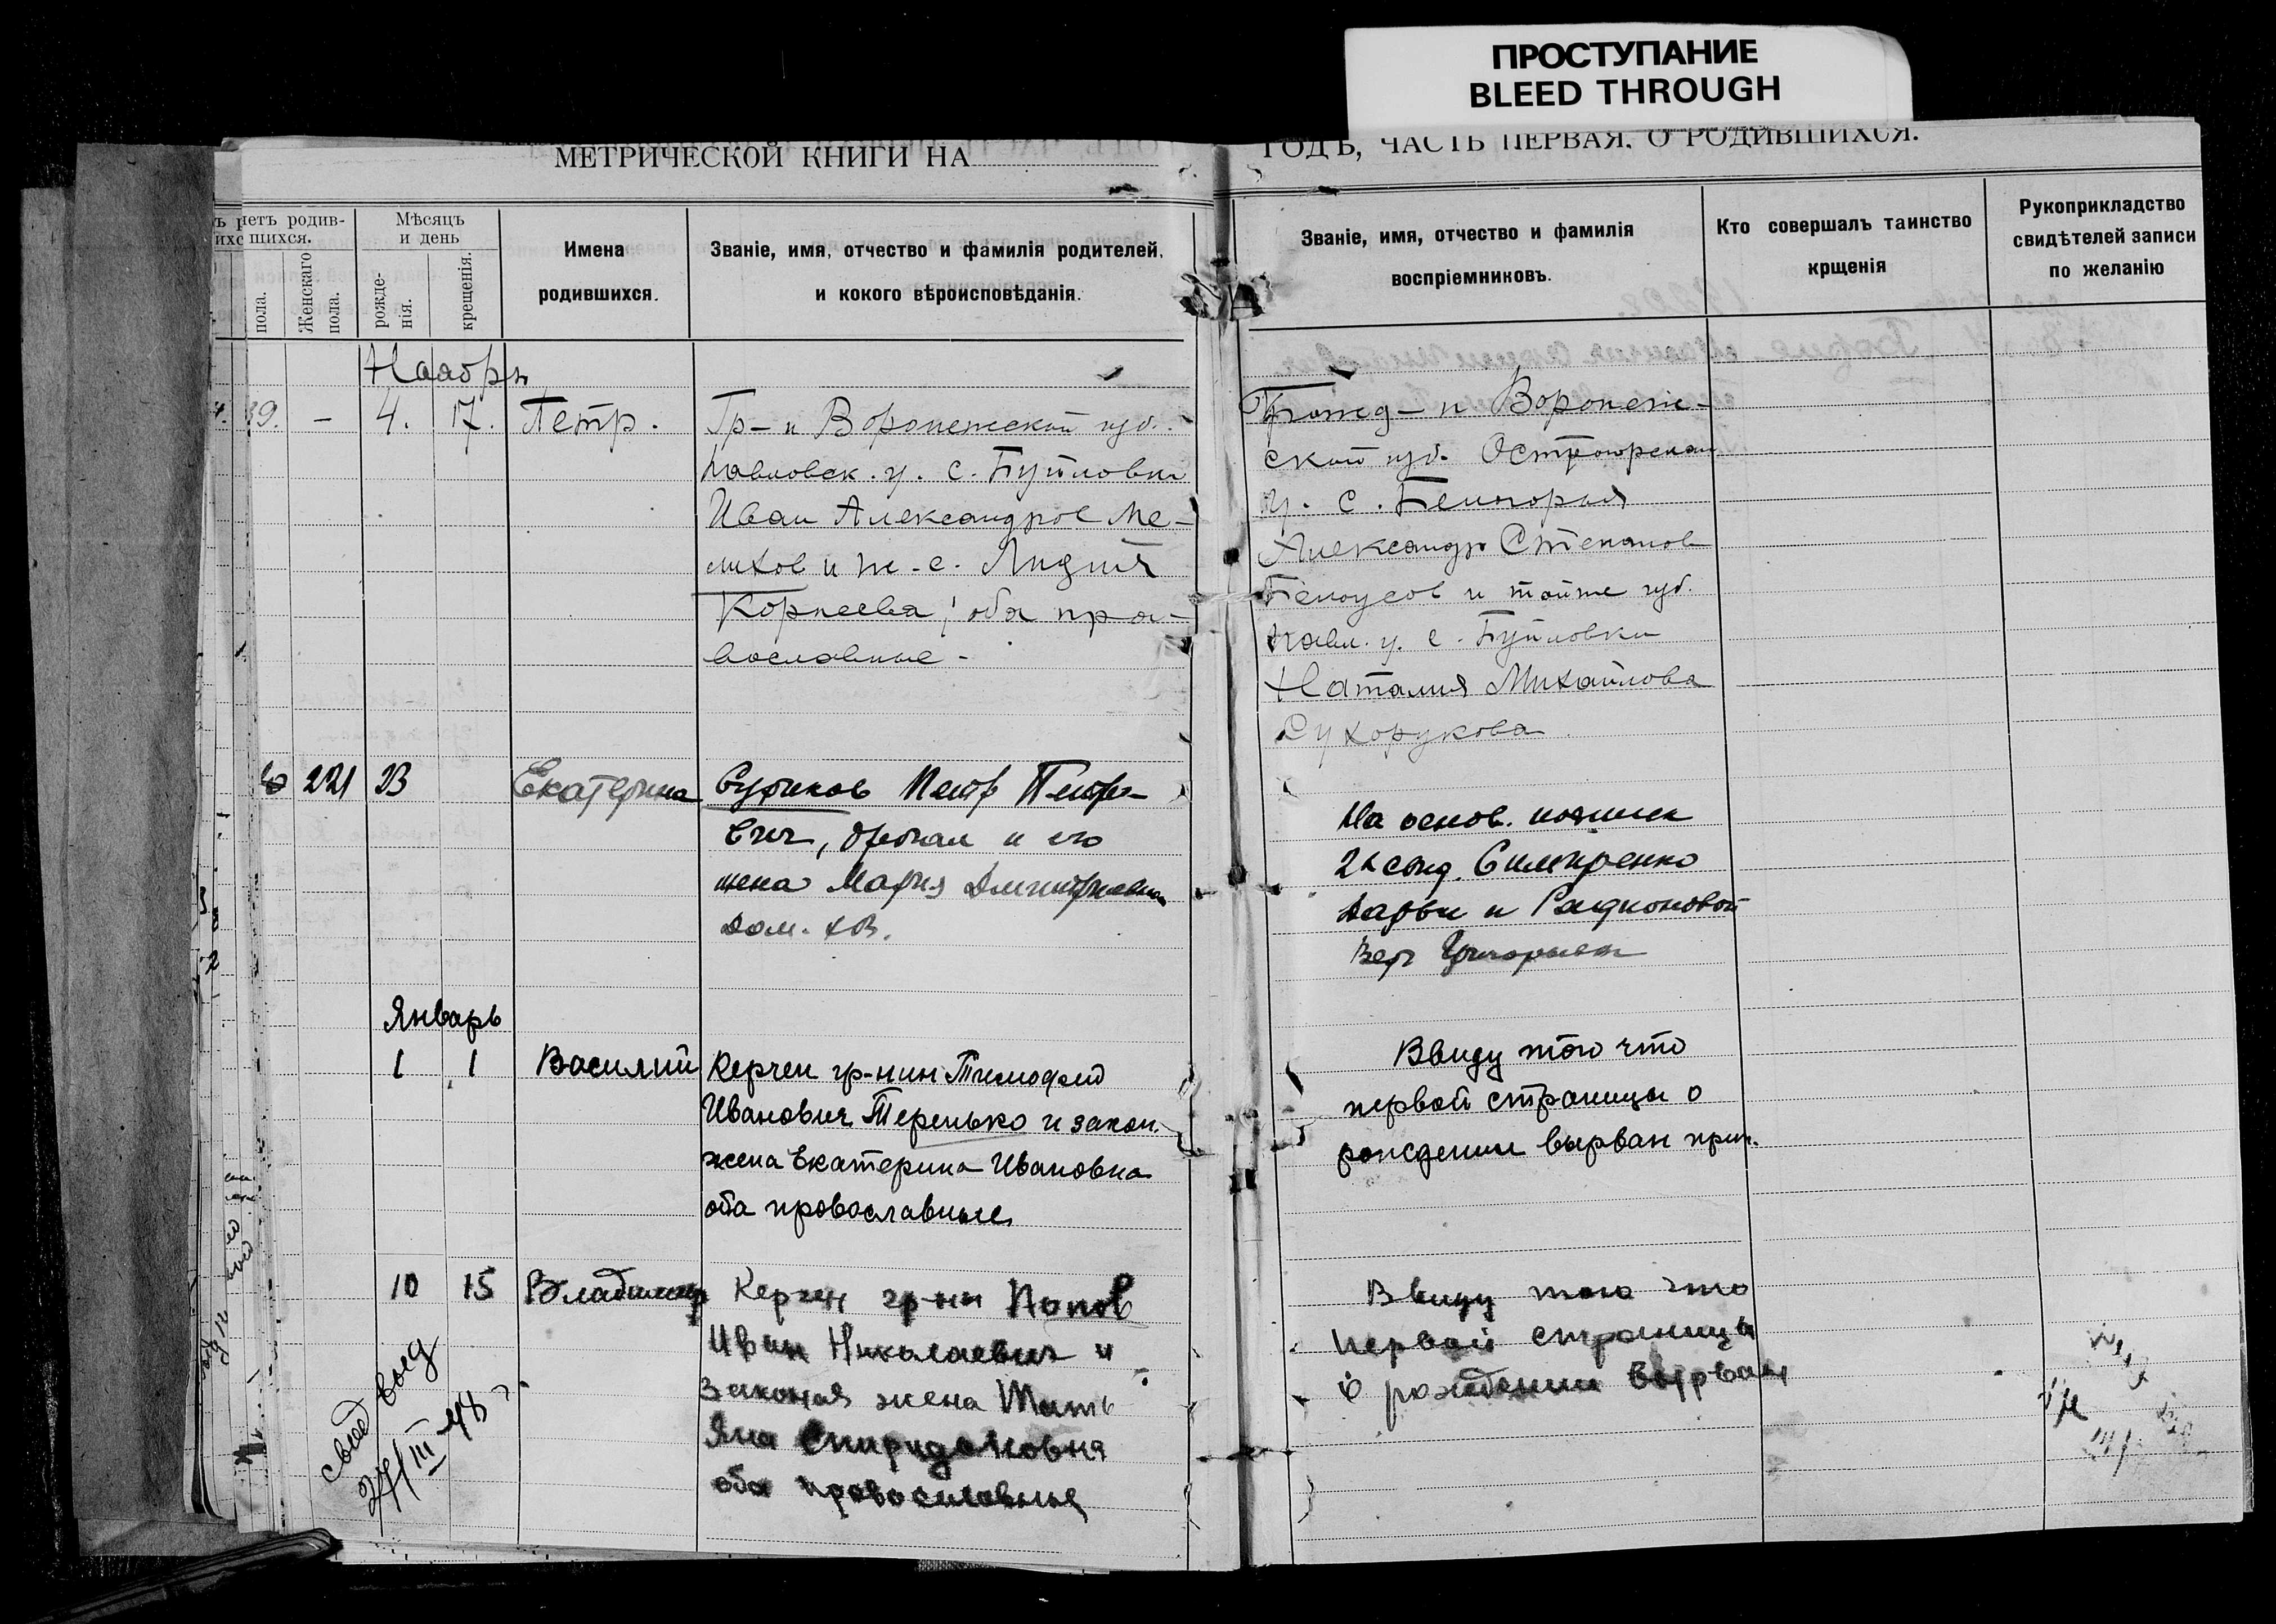 ПРОСТУПАНИЕ
BLEED THROUGH
МЕТРИЧЕСКОЙ КНИГИ НА
ГОДЪ, ЧАСТЬ ПЕРВАЯ, О РОДИВШИХСЯ.
четъ родив-
шихся.
пола.
Женскаго пола.
Мѣсяцъ
и день
рожде-
нія.
крещенія.
Имена
родившихся.
Званіе, имя, отчество и фамилія родителей,
и кокого вѣроисповѣданія.
Званіе, имя, отчество и фамилія
воспріемниковъ.
Кто совершалъ таинство
крщенія
Рукоприкладство
свидѣтелей записи
по желанію
Наябрь
39. – 4. 17. Петр.
Гр-н Воронежской губ.
Павловск. у. с. Бутловки
Иван Александров Ме-
лихов и ж-с. Лидия
Корнеева; оба пра-
вославные -
Гражд-н Воронеж-
ской губ. Острогорскаго
у. с. Белогорья
Александр Степанов
Белоусов и тойже губ.
Павл. у. с. Бутловки
Наталия Михайлова
Сухорукова
221 23 Екатерина
Суриков Петр Петро-
вич, и его
жена Мария Дмитриевна
дом. хоз.
На основ. подписи
2х Симиренко
Дарьи и Радионовой
Вера Григорьевн
Январь
1 1 Василий
Керчен гр-нин Тимофей
Иванович Теренько и закон.
жена Екатерина Ивановна
оба провославные
Ввиду того что
первой страницы о
рождении вырван прик.
10 15 Владимир
Керчен гр-нин Попов
Иван Николаевич и
Законая жена Тать
Яна Спиридоновна
оба провославные
Ввиду того что
первой страницы
о рождении вырван
свид выд
27/III 48 г.